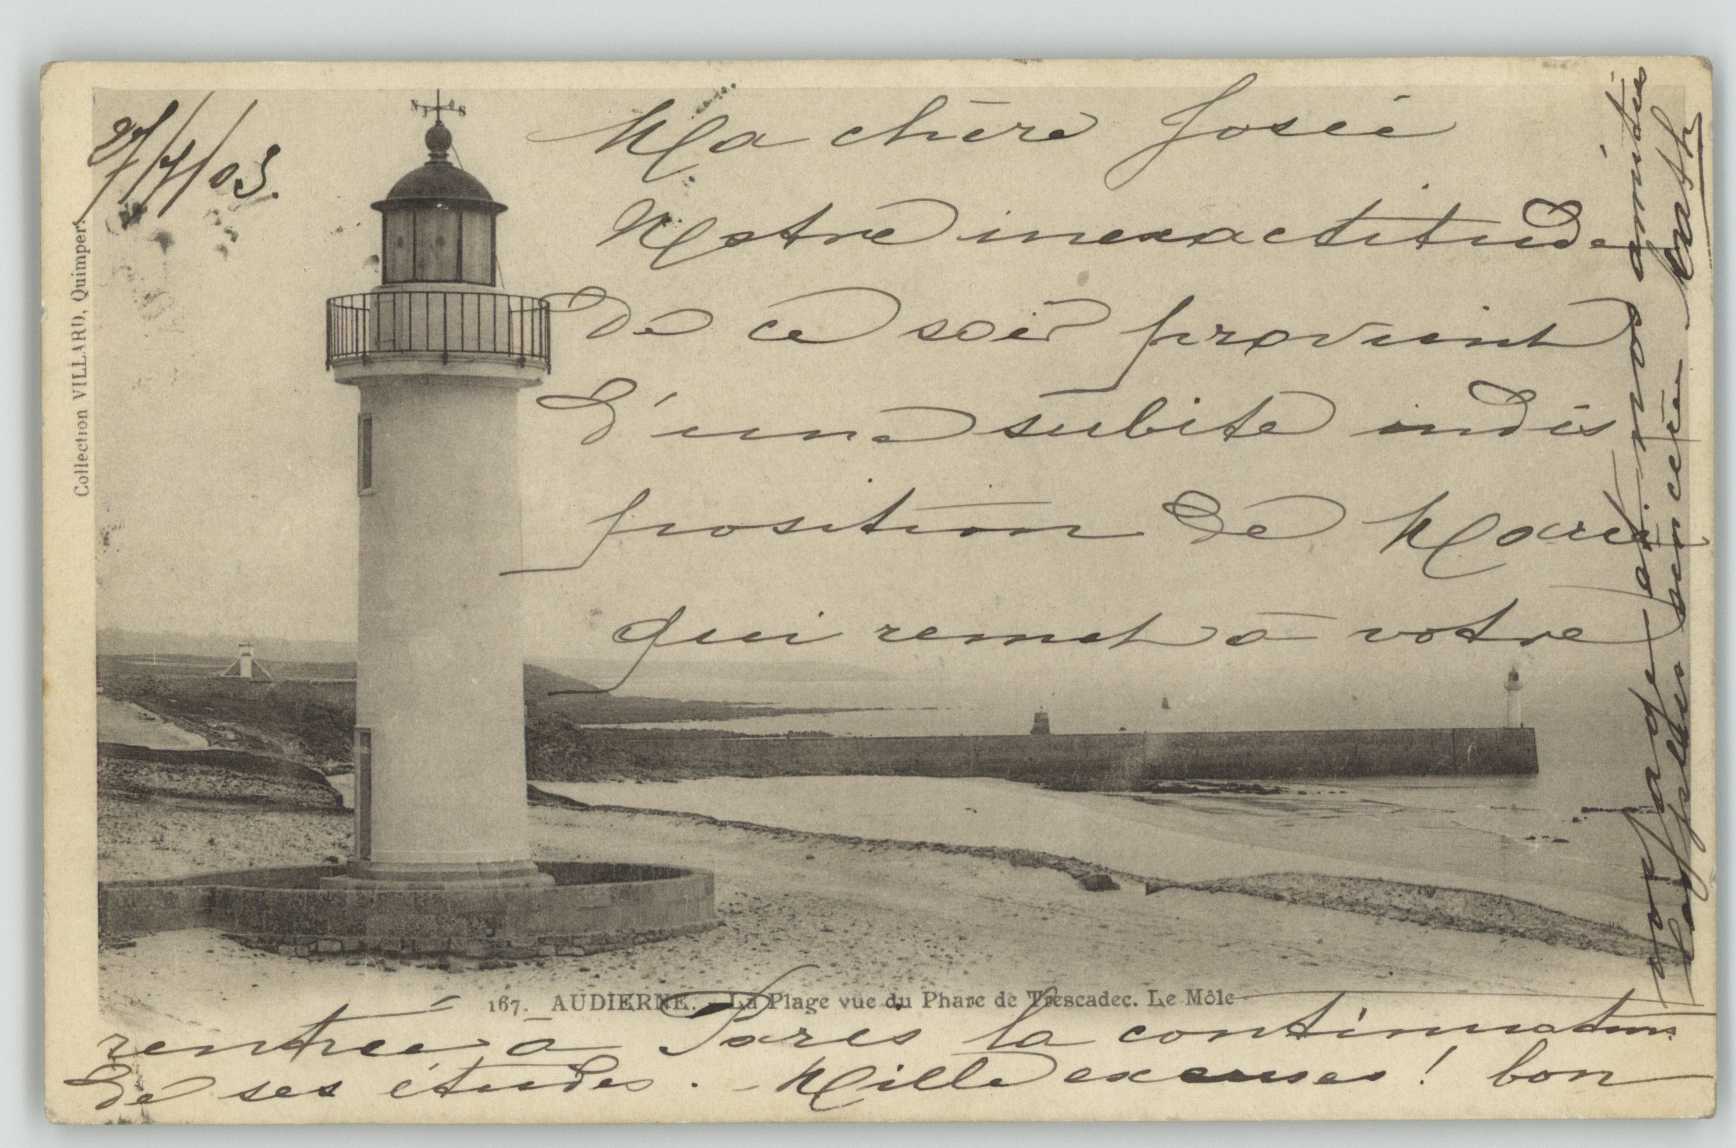 27/7/03.
Ma chère Josée
Notre inexactitude
de ce soir provient
d'une subite indis
position de Marie
qui remet à votre
rentrée à Paris la continuation
de ses études. - Mille excuses ! bon
voyage et nos amitiés
les plus sincères
167. AUDIERNE. - La Plage vue du Phare de Trescadec. Le Môle
Collection VILLARD, Quimper.
N S